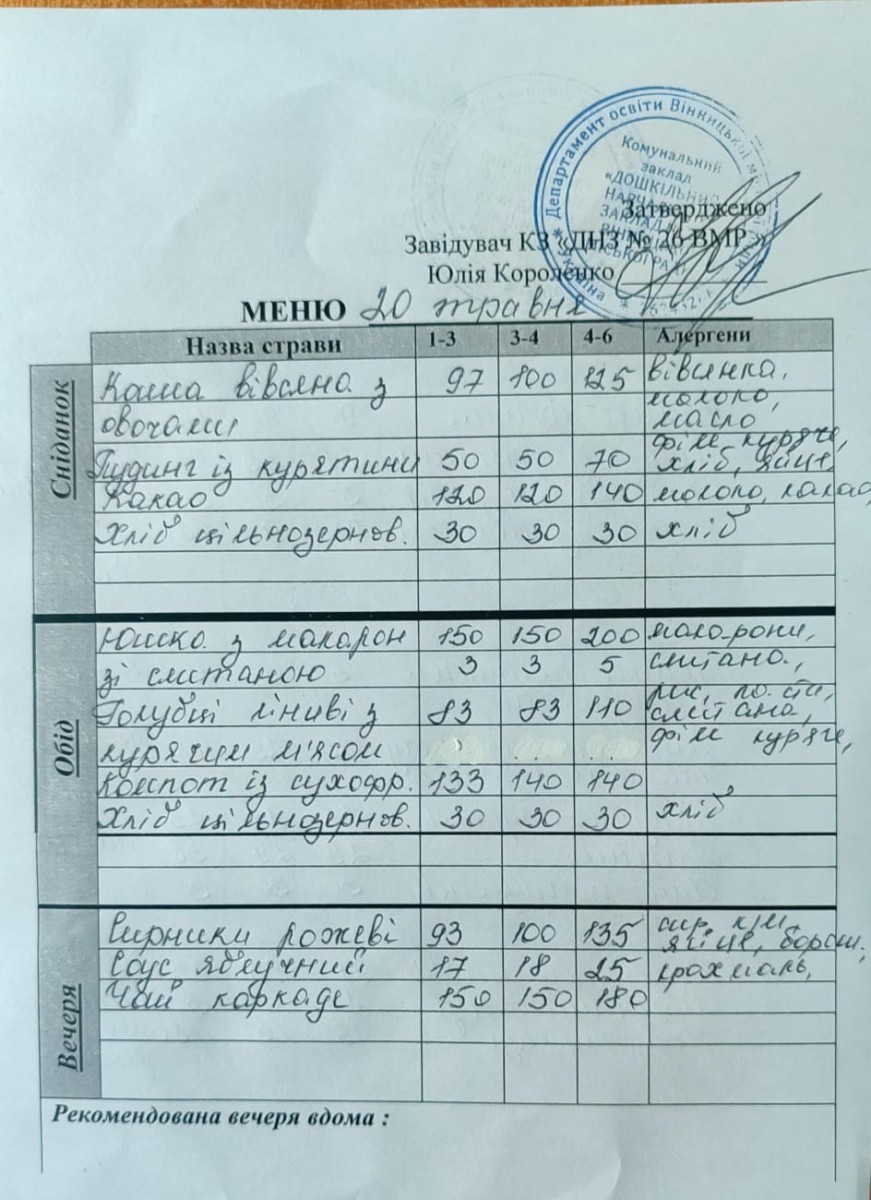 Департамент освіти Вінницької
Комунальний
заклад
«ДОШКІЛЬНИЙ
Затверджено
Завідувач КЗ «ДНЗ № 26 ВМР »
Юлія Короленко
МЕНЮ 20 травня
Назва страви 1-3 3-4 4-6 Алергени
Сніданок
Каша вівсяна з 97 100 125 вівсянка,
овочами молоко,
масло
Пудинг із курятини 50 50 70 філе куряче, хліб, яйце,
Какао 120 120 140 молоко, какао,
Хліб цільнозернов. 30 30 30 хліб
Обід
Юшка з макарон 150 150 200 макарони,
зі сметаною 3 3 5 сметана,
Голубці ліниві з 83 83 110 рис, сметана,
курячим м'ясом філе куряче,
Компот із сухофр. 133 140 140
Хліб цільнозернов. 30 30 30 хліб
Вечеря
Сирники рожеві 93 100 135 сир, яйце, борош.,
Соус яблучний 17 18 25 крохмаль,
Чай каркаде 150 150 180
Рекомендована вечеря вдома :